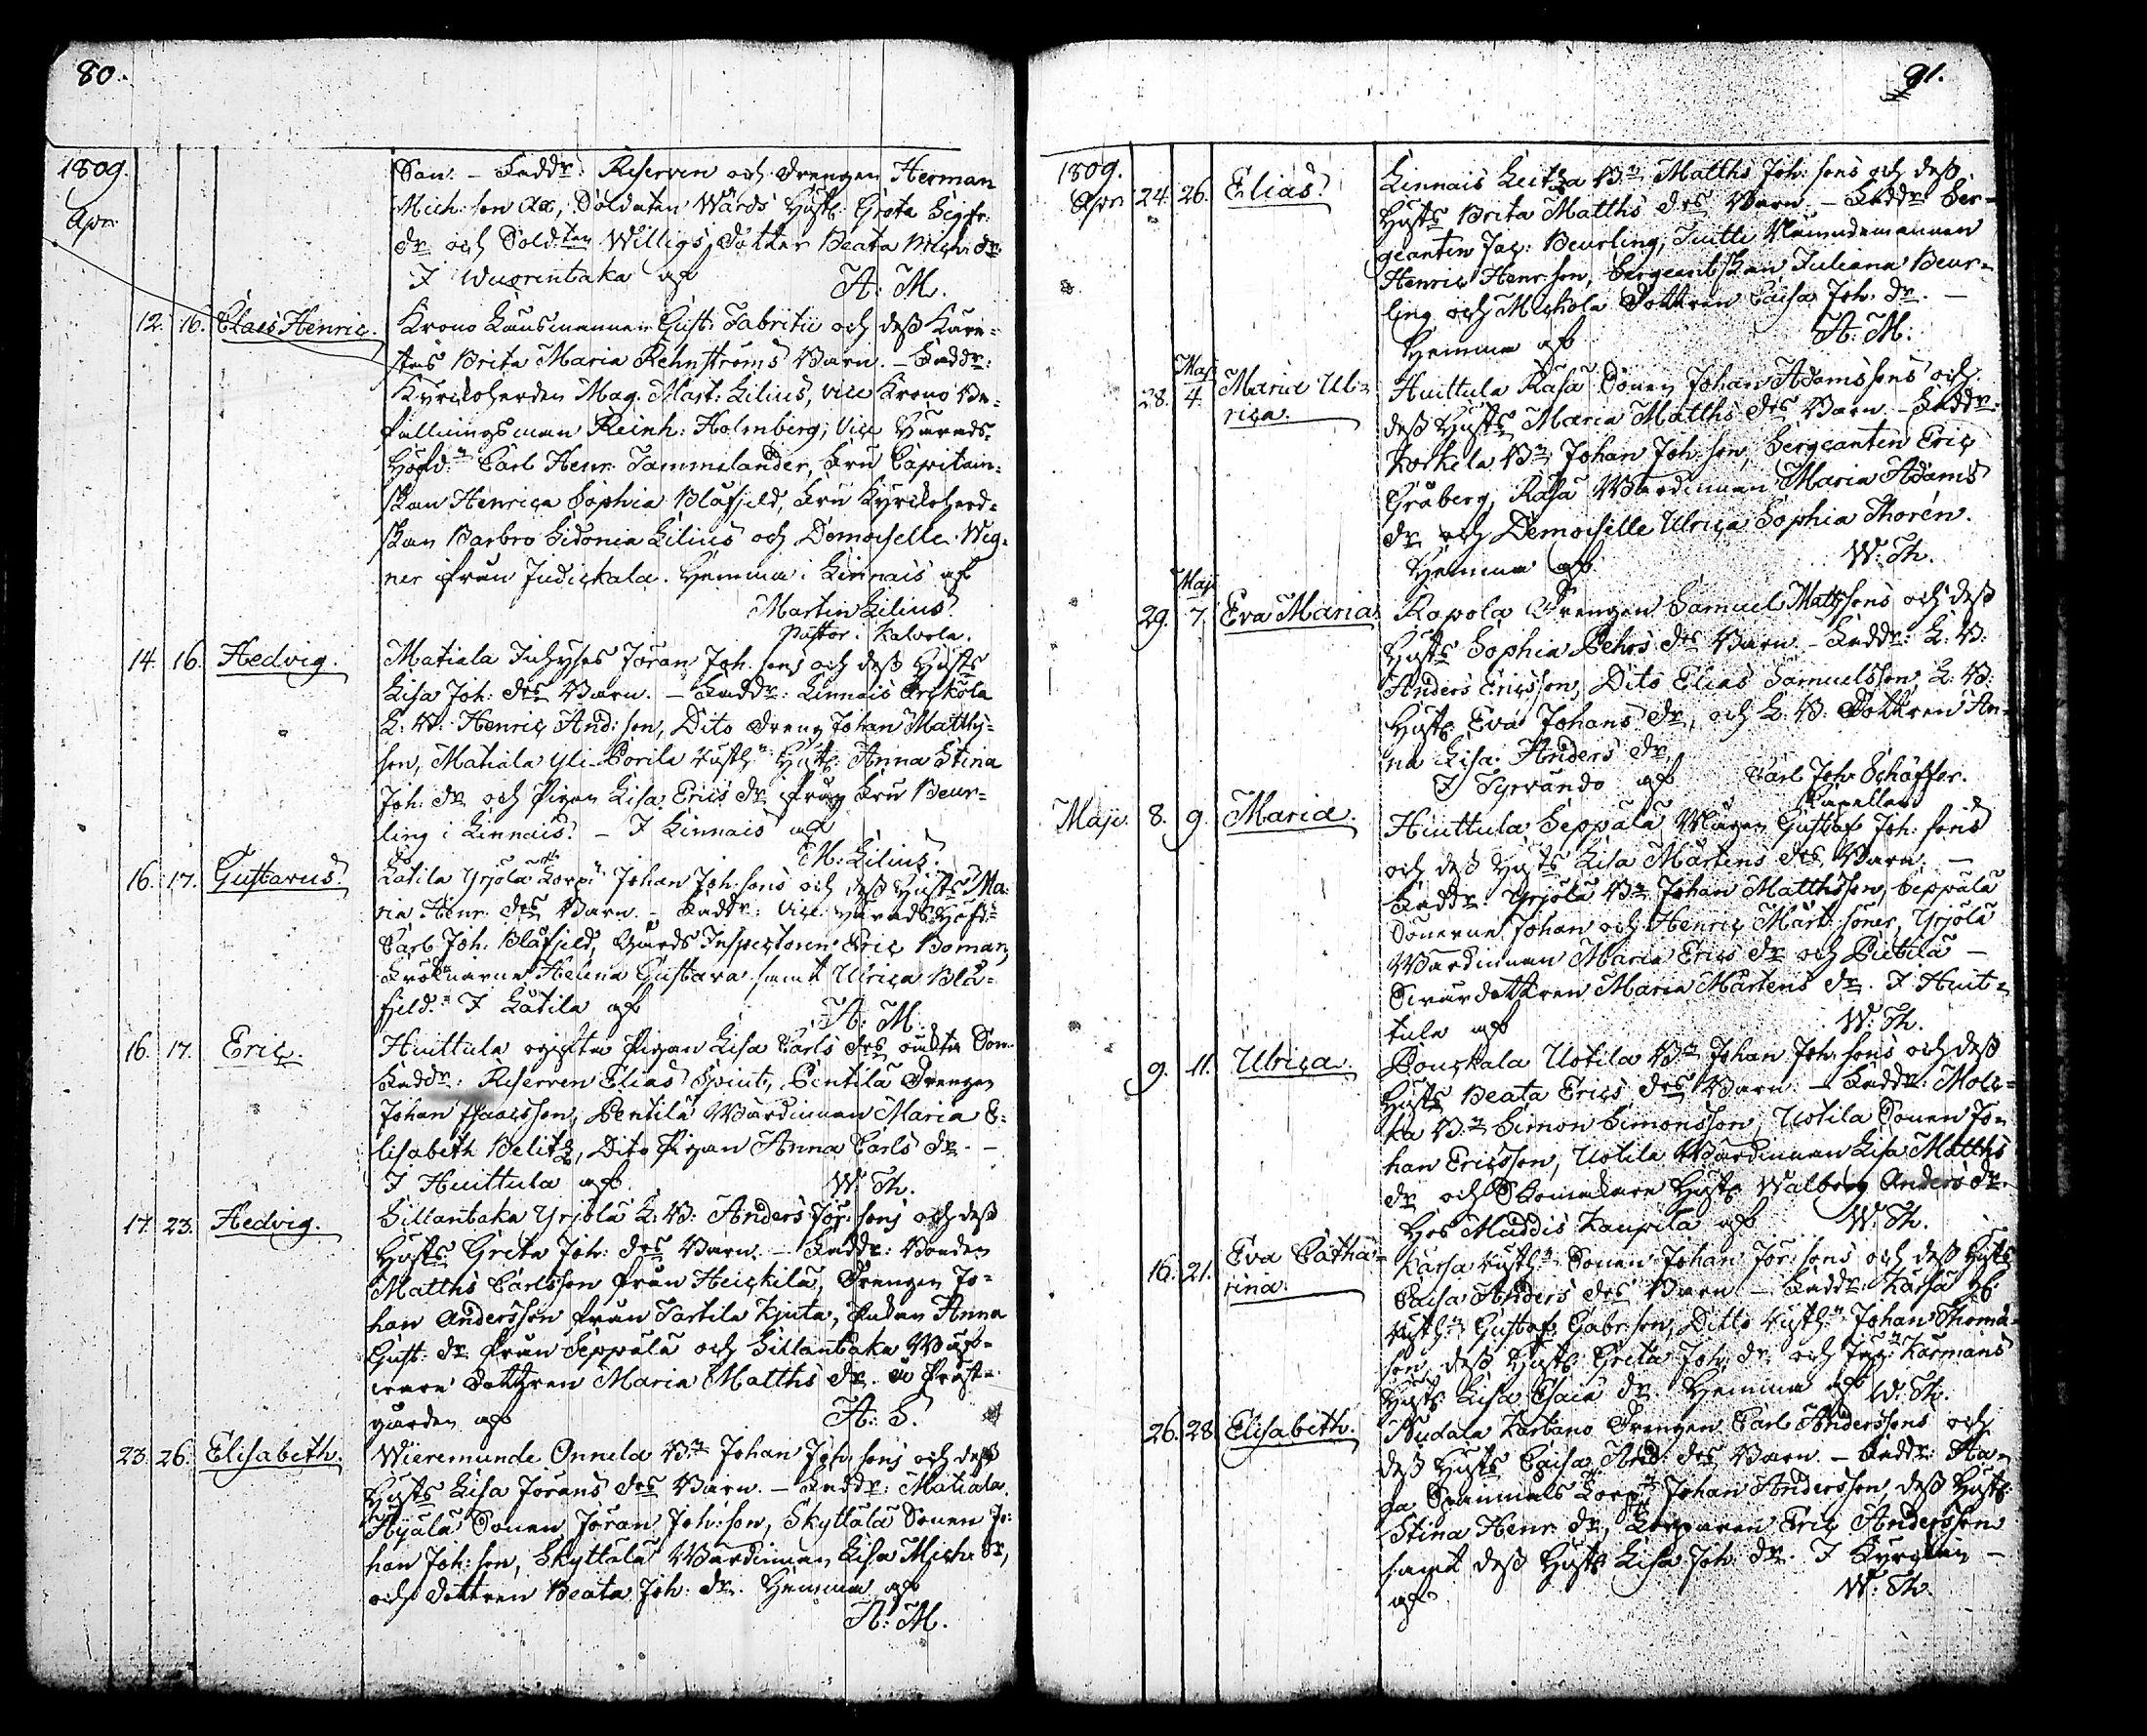 80.
1809.
Apr:
Son. - Faddr: Reserven och Drengen Herman
Mich:son Ox, Soldaten Wårds Hust: Greta Sigfr:
dr och Soldten Willigs Dotter Beata Mich: dr
I Wuorentaka af A: M.
12. 16. Claes Henric. Krono Länsmannen Gust: Fabritii och dess Käre-
stas Brita Maria Rehnströms Barn. - Faddr:
Kyrkoherden Mag. Mart: Lilius, vice Krono Be-
fallningsman Reinh: Holmberg, Vice Härads-
Höfd: Carl Henr: Tammelander, Fru Capitain-
skan Henrica Sophia Blåfjeld, Fru Kyrkoherd-
skan Barbro Sidonia Lilius och Demoiselle Weg-
ner från Judickala. Hemma i Linnais af
Martin Lilius
Pastor i Kalvola.
14. 16. Hedvig. Matiala Joran Joh: sons och dess Husts
Lisa Joh: drs Barn. - Faddr: Linnais Erckola
L: B: Henric And: son, Dito Dreng Johan Matths-
son, Matiala Yli-Porila Rusth: Hust: Anna Stina
Joh: dr och Pigan Lisa Erics dr från Fru Beur-
ling i Linnais. - I Linnais af
M: Lilius.
16. 17. Gustavus. Katila Yrjola Johan Joh: sons och dess Husts Ma-
ria Henr: drs Barn. - Faddr: Vice Härads Höfd:
Carl Joh: Blåfjeld, Gårds Inspectoren Eric Boman,
Fröknarna Helena Gustava samt Ulrica Blå-
fjeld. I Katila af A: M.
16. 17. Eric. Huittula ogifta Pigan Lisa Carls drs oäkta Son.
Faddr: Reserven Elias Spint, Pentila Drengen
Johan Isacsson, Pentila Wärdinnan Maria E-
lisabeth Belitz, Dito Pigan Anna Carls dr. -
I Huittula af W: Th.
17. 23. Hedvig. Sillantaka Yrjola L: B: Anders Jör: sons och dess
Husts Greta Joh: drs Barn. - Faddr: Bonden
Matths Carlsson från Heickilä, Drengen Jo-
han Andersson från Tartila Kjuta, Enkan Anna
Gust: dr från Seppälä och Sillantaka
dottren Maria Matths dr. å Prest-
gården af A: S.
23. 26. Elisabeth. Wieremunde Onnela Bn Johan Joh: sons och dess
Husts Lisa Jörans drs Barn. - Faddr: Matiala
Äijälä Sonen Jöran Joh: son, Skyttälä Sonen Jo-
han Joh: son, Skyttälä Wärdinnan Lisa Mich: dr,
och dottren Beata Joh: dr. Hemma af
A: M.
91.
1809.
Apr: 24. 26. Elias. Linnais Leitza Bn Matths Joh: sons och dess
Husts Brita Matths drs Barn. - Faddr: Ser-
geanten Jac: Beurling, Nämndemannen
Henric Henr: son, Sergeantskan Juliana Beur-
ling och Michola Dottren Caisa Joh: dr. -
Hemma af A: M:
28. Maj 4. Maria Ul-
rica. Huittula Rasa Sonen Johan Adamssons och
dess Husts Maria Matths drs Barn. - Faddr:
Bn Johan Joh: son, Sergeanten Eric
Gråberg, Rasa Wärdinnan Maria Adams
dr och Demoiselle Ulrica Sophia Thorén.
Hemma af W: Th.
29. Maj 7. Eva Maria Rapola Drengen Samuel Matssons och dess
Husts Sophia Pehrs drs Barn. - Faddr: L: B:
Anders Ericsson, Dito Elias Samuelsson, L: B:
Hust: Eva Johans dr, och L: B: Dottren An-
na Lisa Anders dr
I Tyrvändö af Carl Joh: Schaffer.
Capellan
Maji. 8. 9. Maria. Huittula Seppälä Mågen Gustaf Joh: sons
och dess Husts Lisa Mårtens drs Barn. -
Faddr: Yrjölä Bn Johan Matthsson, Seppälä
Sönerne Johan och Henric Mårt: söner, Yrjölä
Wärdinnan Maria Erics dr och Pietilä -
Maria Mårtens dr. I Huit-
tula af W: Th.
9. 11. Ulrica. Pouckala Uotila Bn Johan Joh: sons och dess
Husts Beata Erics drs Barn. - Faddr: Mole-
ka Bn Simon Simonsson, Uotila Sonen Jo-
han Ericsson, Uotila Wärdinnan Lisa Matths
dr och Skomakare Hust: Walborg Anders dr.
Hos Maddis Kaupila af W: Th.
16. 21. Eva Catha-
rina. Karsa Rusth: Sonen Johan Jör: sons och dess Husts
Caisa Anders drs Barn. - Faddr: Karsa
Rusth: Gustaf Gabr: son, Ditto Rusth: Johan Thoma-
son, dess Hust: Greta Joh: dr och Karmans
Hust: Lisa Esaia dr. Hemma af W: Th.
26. 28. Elisabeth. Kudala Karbano Drengen Carl Anderssons och
dess Husts Caisa And: drs Barn. - Faddr: Ha-
ga Spannals Johan Andersson, dess Hust:
Stina Henr: dr, Eric Andersson
samt dess Hust: Lisa Joh: dr. I Kyrckan -
af W: Th.